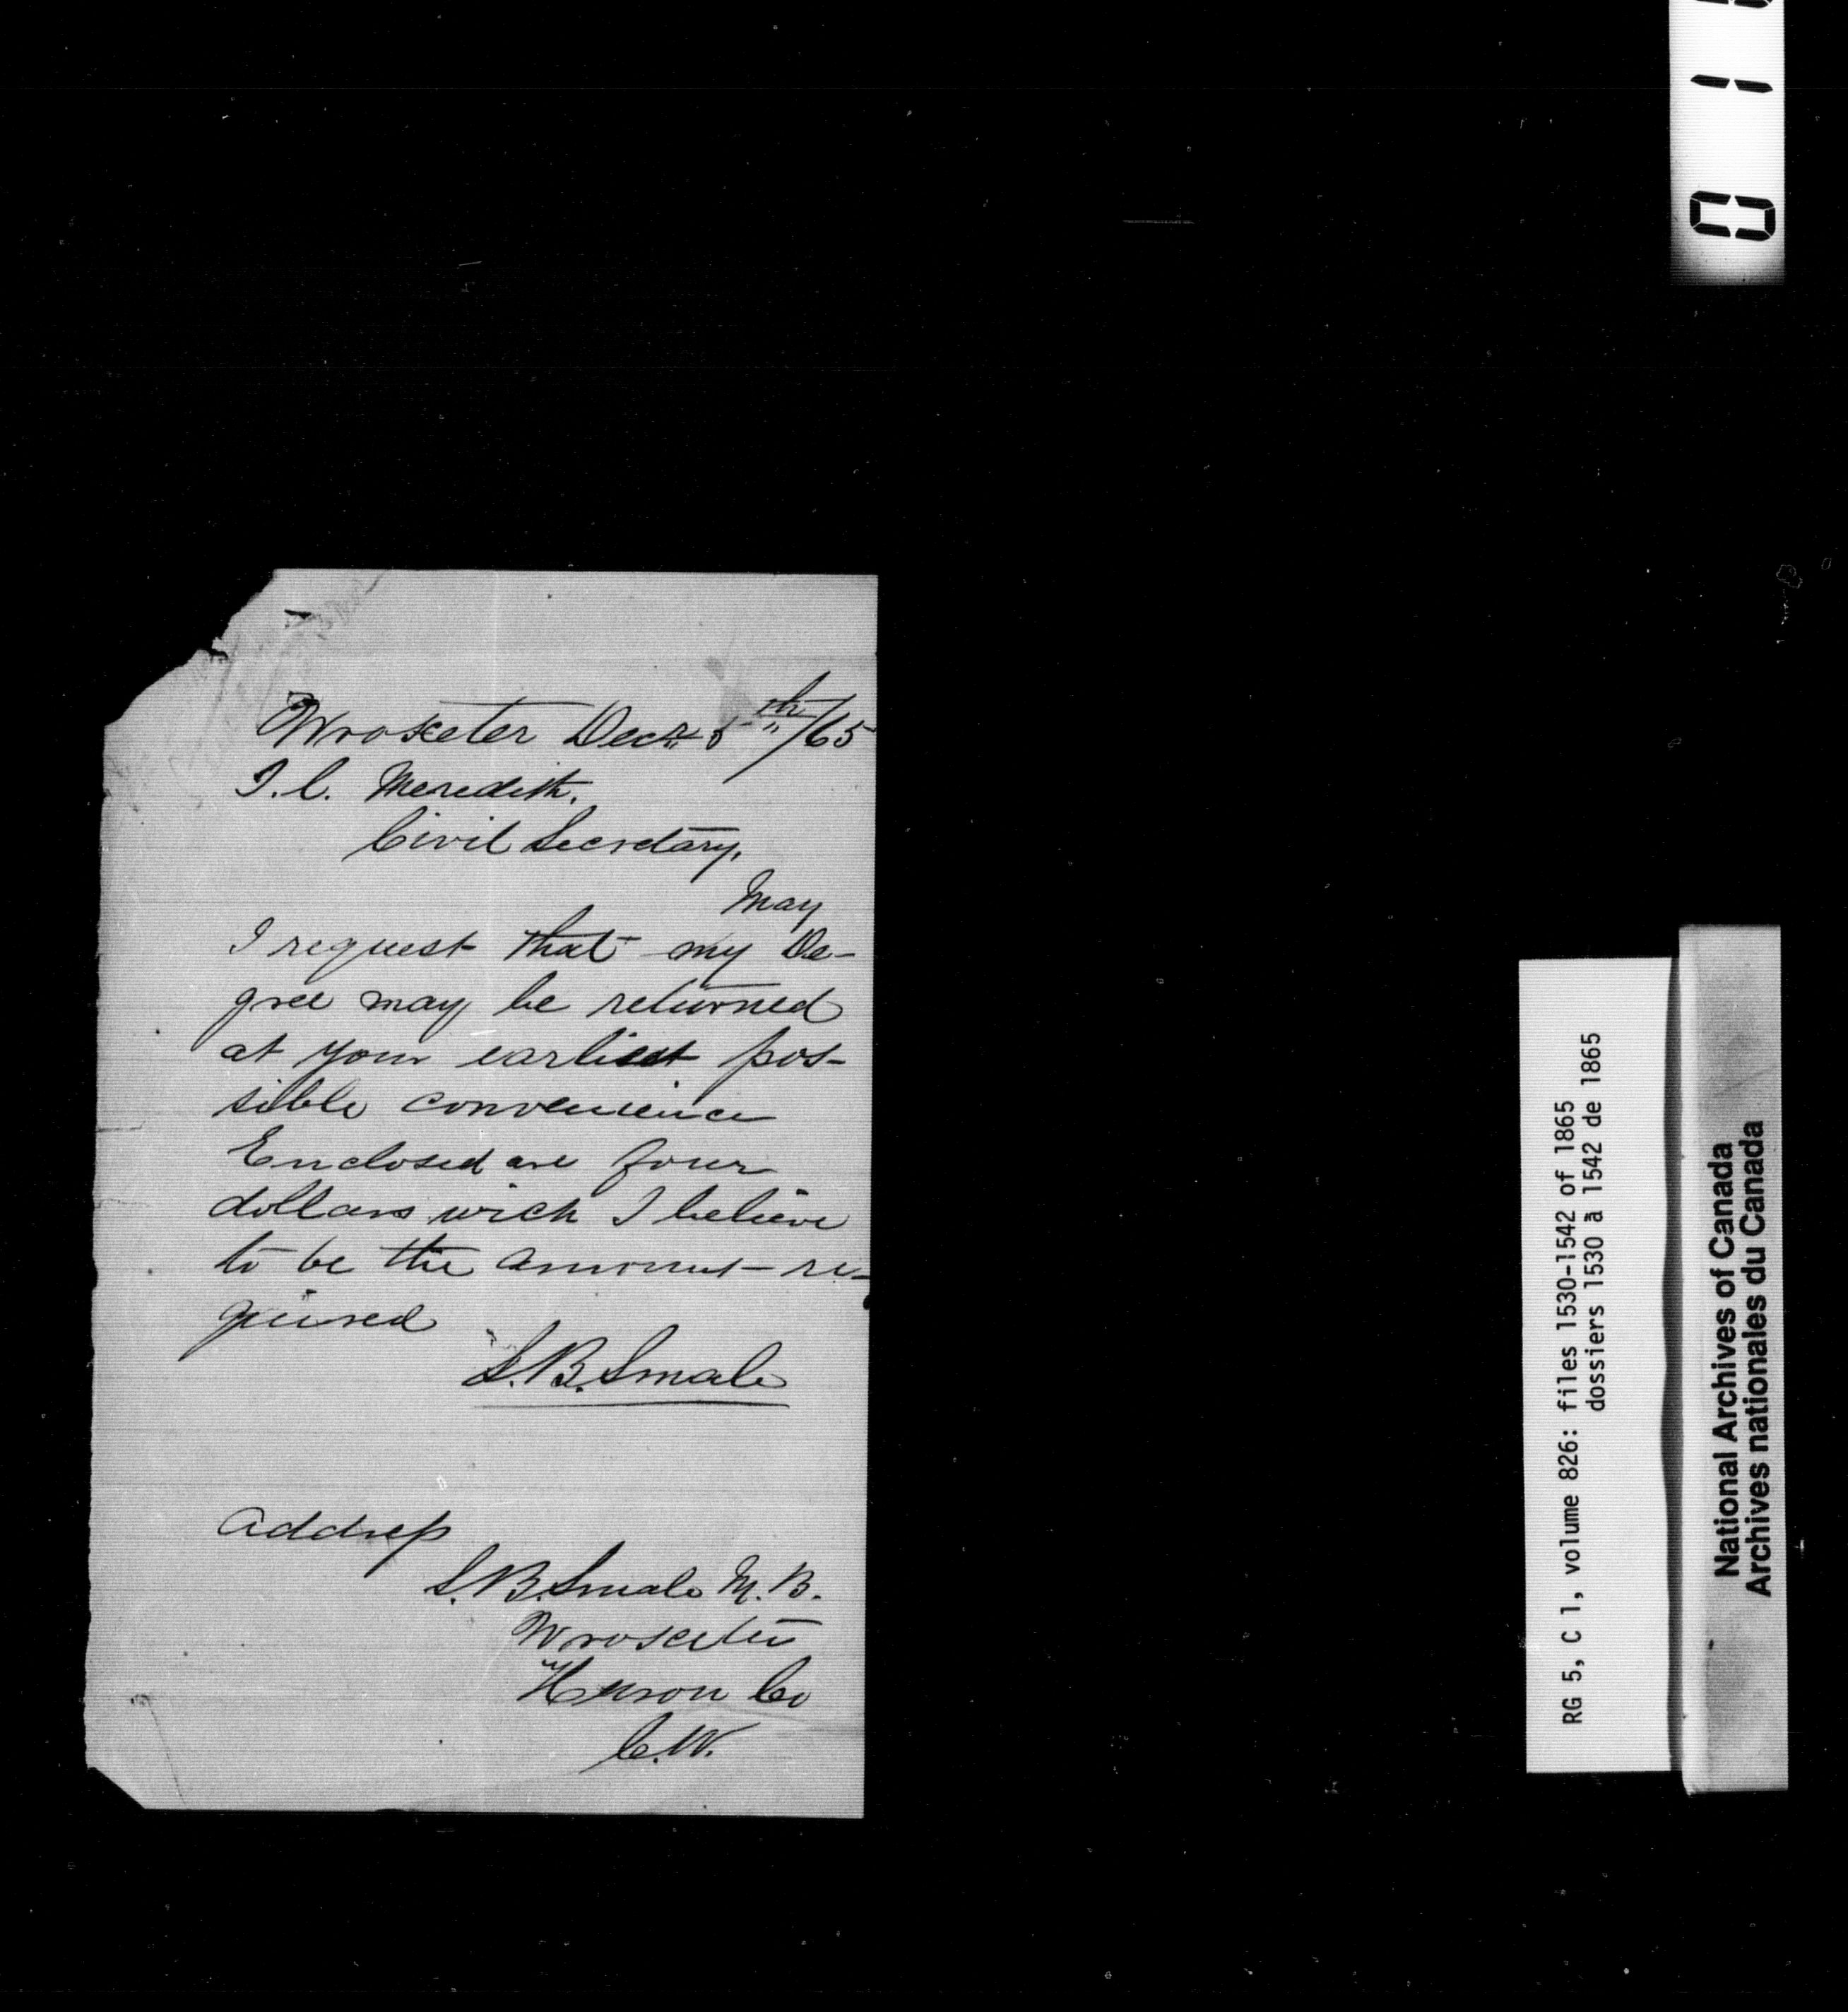 Wroxeter Decr 5th/65
I. C. Meredith.
Civil Secretary,
May
I request that my De-
gree may be returned
at your earliest pos-
sible convenience
Enclosed are four
dollars wich I believe
to be the amount re-
quired
S. B. Smale
Address
S. B. Smale M. B.
Wroxeter
Huron Co
C. W.
RG 5, C 1, volume 826: files 1530-1542 of 1865
dossiers 1530 à 1542 de 1865
National Archives of Canada
Archives nationales du Canada